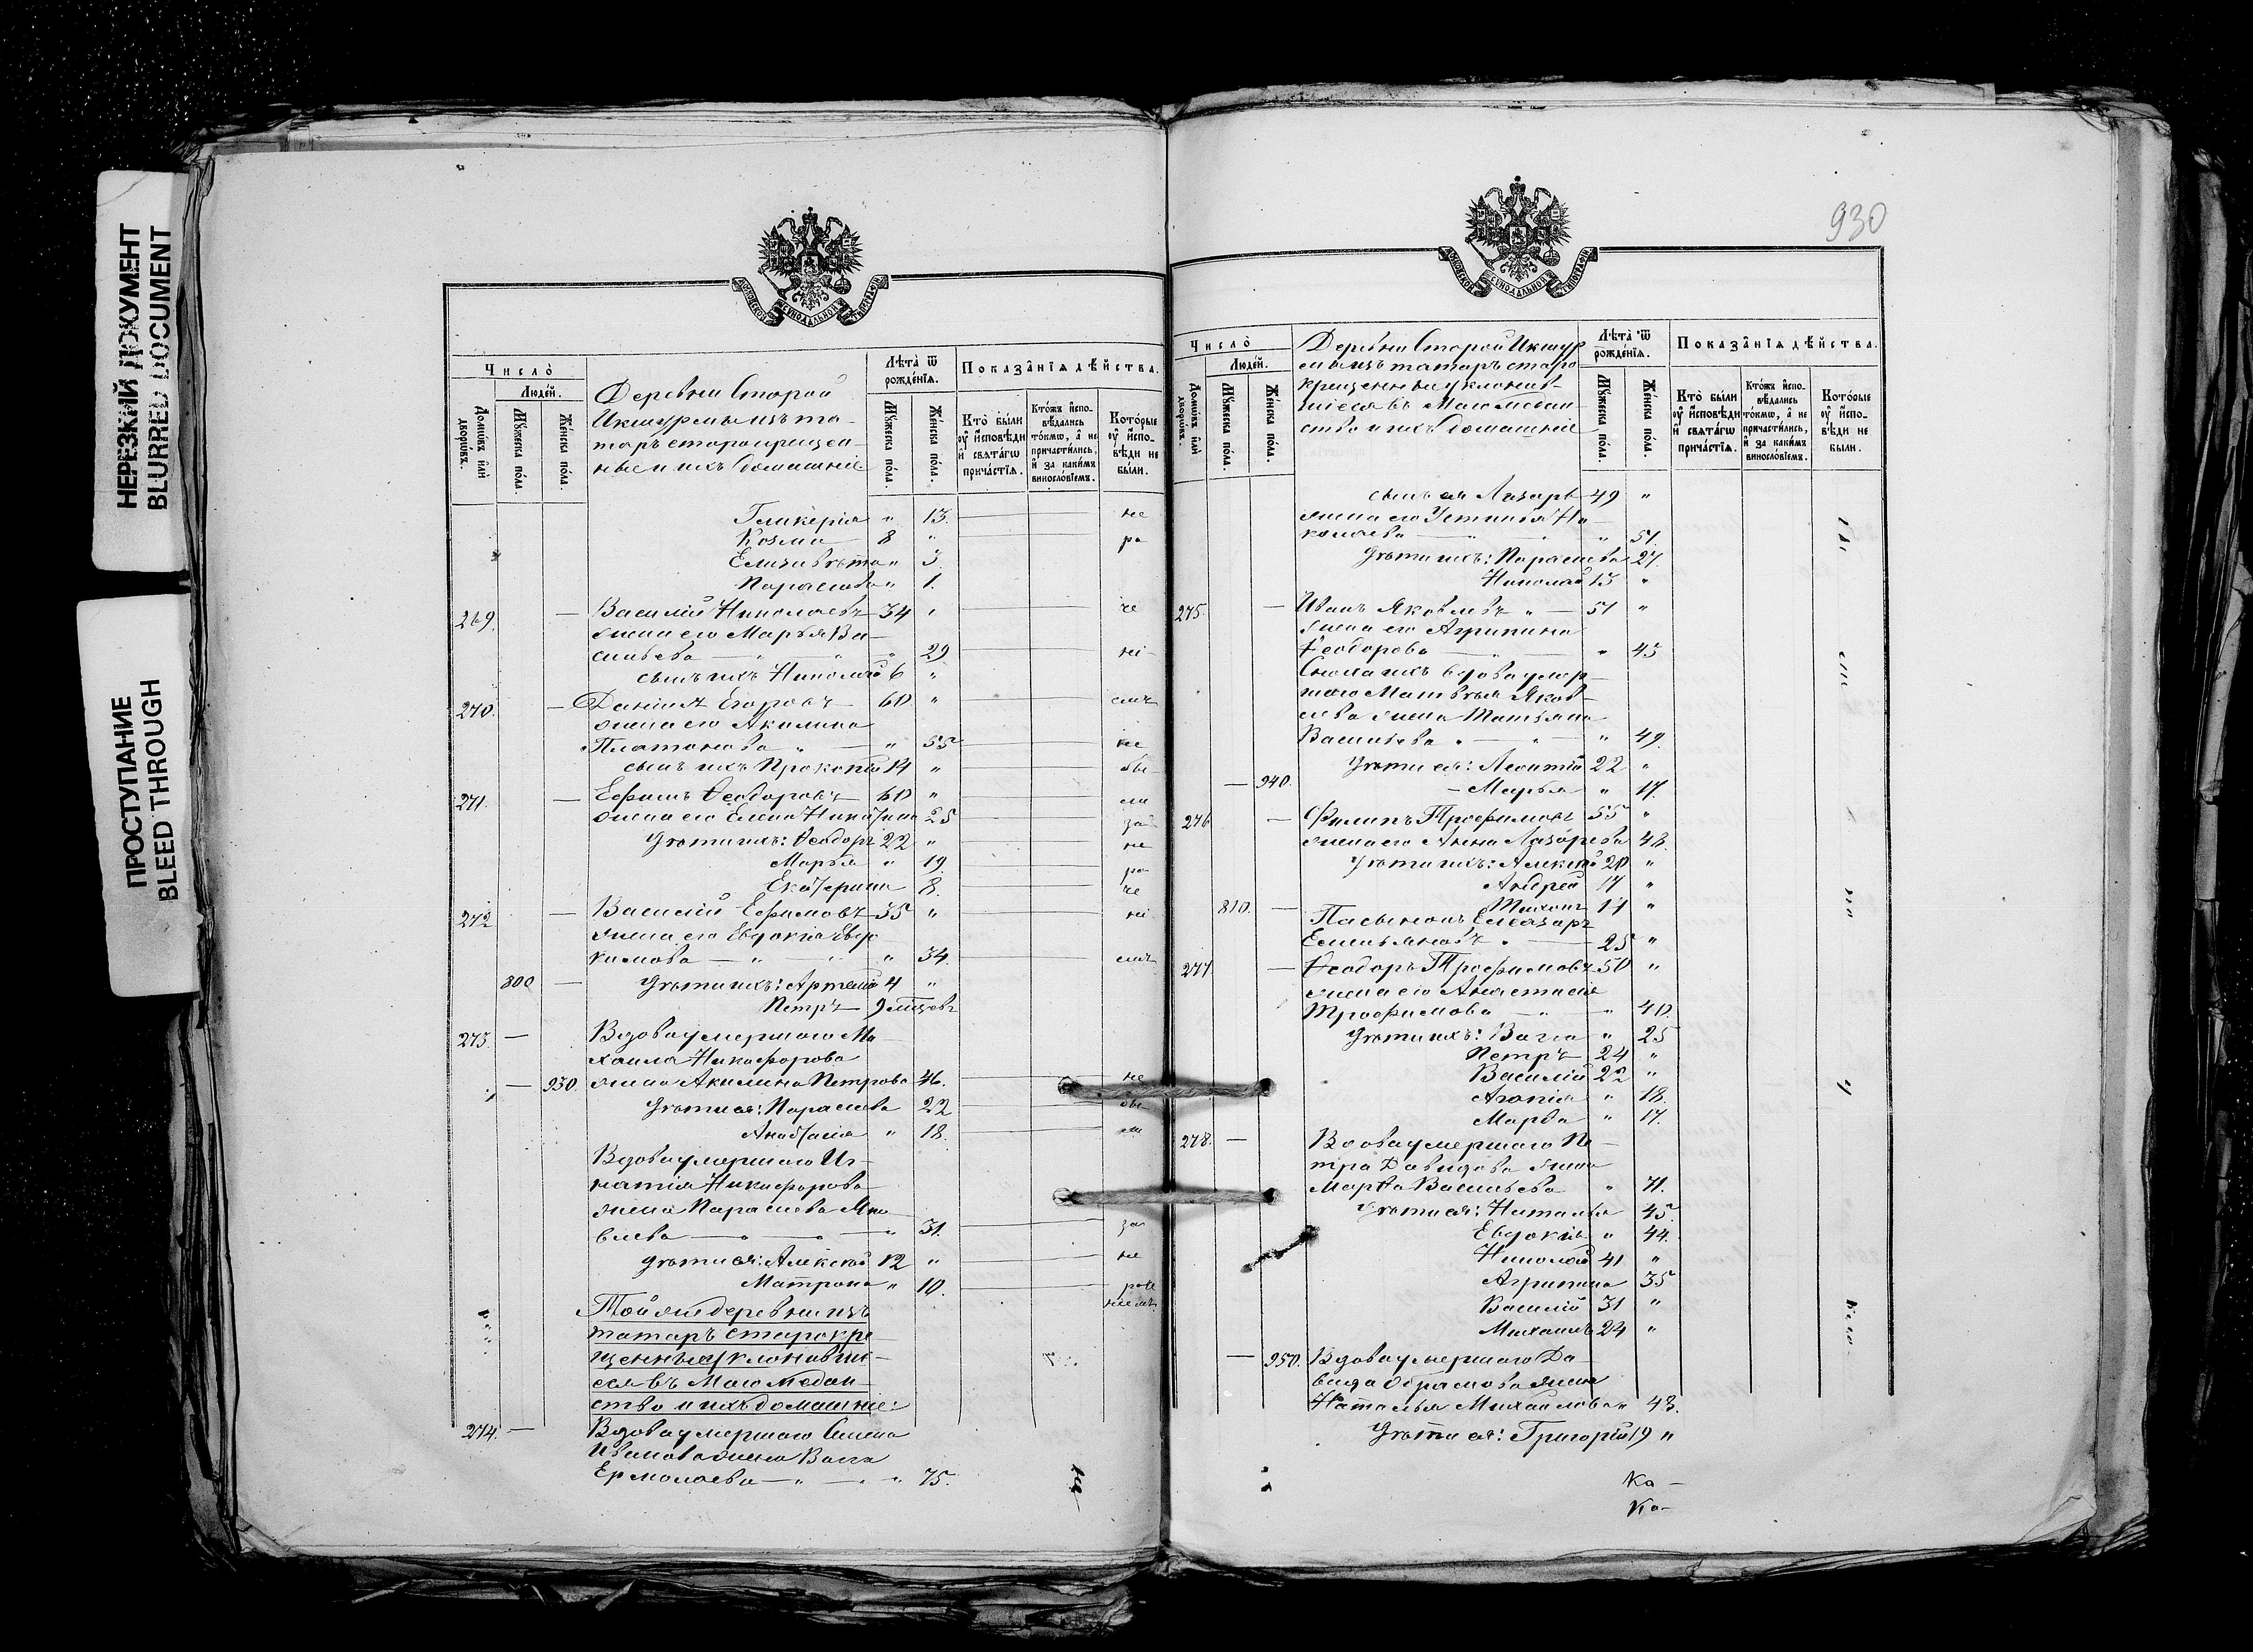 НЕРЕЗКИЙ ДОКУМЕНТ
BLURRED DOCUMENT
ПРОСТУПАНИЕ
BLEED THROUGH
МОСКОВСКОЙ СѴНОДАЛЬНОЙ ТИПОГРАФІИ
Число̀
Людей.
Домѡвъ или дворѡвъ.
Мꙋжеска пола.
Женска пола.
Деревни Старой
Икшурмы изъ та-
таръ старокрещен-
ные и ихъ домашніе
Лѣта ѿ рожденїѧ.
Мꙋжеска пола.
Женска пола.
Показанїѧ дѣйства.
Кто были оу исповѣди и свѧтагѡ причастїѧ.
Ктожъ исповѣдались токмѡ, а не причастились, и за какимъ винословїемъ.
Которые оу исповѣди не были.
Гликерія " 13. не
Козма 8 " ро
Елизавѣта " 3.
Параскева " 1.
269. — Василій Николаевъ 34 " че
жена его Марья Ва-
сильева — " " 29.
сынъ ихъ Николай 6 "
270. — Даніилъ Егоровъ 60 "
жена его Акилина
Платонова " — " 55 не
сынъ ихъ Прокопій 14 " бы-
271. — Ефимъ Ѳеодоровъ 60 " ли
жена его Елена Никитина 25 за
дѣти ихъ: Ѳеодоръ 22 " не
Марья " 19. ра
Екатерина 8. че
272 — Василій Ефимовъ 35 "
жена его Евдокія Евдо-
кимова — " " " 34.
800 — дѣти ихъ: Артемій 4 "
Петръ — 9 мѣсяцевъ
273. — Вдова умершаго Ми-
хаила Никифорова
— 930. жена Акилина Петрова 46. не
дѣти ея: Параскева 22 бы
Анастасія " 18. ли
Вдова умершаго Иг-
натія Никифорова
жена Параскева
— " 31. за
дѣти ея: Алексѣй 12 " не
Матрона " 10.
Той же деревни изъ
татаръ старокре-
щенные уклонивші-
еся въ Магометан-
ство и ихъ домашніе:
274. — Вдова умершаго Семена
Иванова жена Васса
Ермолаева — " — " 75.
930
МОСКОВСКОЙ СѴНОДАЛЬНОЙ ТИПОГРАФІИ
Число̀
Людей.
Домѡвъ или дворѡвъ.
Мꙋжеска пола.
Женска пола.
Деревни Старой Икшур
мы изъ татаръ старо
крещенные уклонив-
шіеся въ Магометан-
ство и ихъ домашніе
Лѣта ѿ рожденїѧ.
Мꙋжеска пола.
Женска пола.
Показанїѧ дѣйства.
Кто были оу исповѣди и свѧтагѡ причастїѧ.
Ктожъ исповѣдались токмѡ, а не причастились, и за какимъ винословїемъ.
Которые оу исповѣди не были.
сынъ ея Лазарь 49 "
жена его Устинья Ни-
колаева — " " 51.
дѣти ихъ: Параскева 27.
Николай 13 "
275. — Иванъ Яковлевъ " — 51 "
жена его Агрипина
Ѳеодорова — " 45
Сноха ихъ вдова умер-
шаго Матвѣя Яков-
лева жена Татьяна
Васильева " — " — " 49.
дѣти ея: Леонтій 22 "
— 940. — Марья " 17.
276 — Филипъ Трофимовъ 55 "
жена его Анна Лазарева 48.
дѣти ихъ: Алексѣй 20 "
Андрей 17 "
810. — Тихонъ 11 "
Пасынокъ Елеазаръ
Емельяновъ " — 25 "
277 — Ѳеодоръ Трофимовъ 50 "
жена его Анастасія
Трофимова — " — " 40.
дѣти ихъ: Васса " 25
Петръ — 24 "
Василій 22 "
Агапія " 18.
Марѳа " 17.
278. — Вдова умершаго Пе-
тра Давидова жена
Марѳа Васильева " 71.
дѣти ея: Наталья 45.
Евдокія " 44.
Николай 41 "
Агрипина 35
Василій 31 "
Михаилъ 24 "
— 950. Вдова умершаго Да-
вида Абрамова жена
Наталья Михайлова " 43.
дѣти ея: Григорій 19 "
Ка —
Ка —